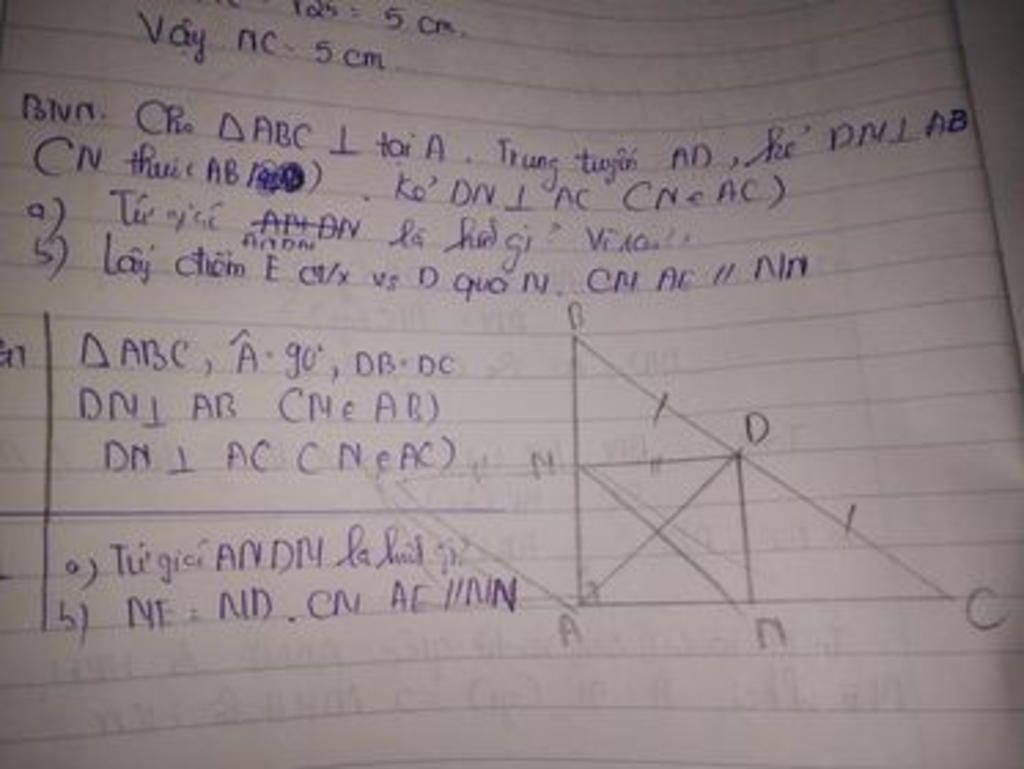 √25 = 5 cm.
Vậy NC = 5 cm
Cho △ABC ⊥ tại A. Trung tuyến AD, kẻ DM ⊥ AB
(M thuộc AB). Kẻ DN ⊥ AC (N ∈ AC)
a) Tứ giác AMDN là hình gì? Vì sao?
b) Lấy điểm E đ/x vs D qua M. CM AE // MN
△ABC, Â = 90°, DB = DC
DM ⊥ AB (M ∈ AB)
DN ⊥ AC (N ∈ AC)
a) Tứ giác ANDM là hình gì?
b) ME = MD. CM AE // MN
B
D
M
A
N
C